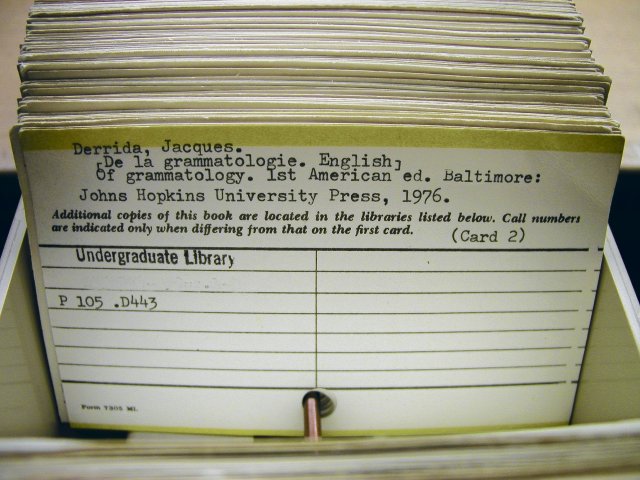 Derrida, Jacques.
[De la grammatologie. English]
Of grammatology. 1st American ed. Baltimore:
Johns Hopkins University Press, 1976.
Additional copies of this book are located in the libraries listed below. Call numbers
are indicated only when differing from that on the first card.
(Card 2)
Undergraduate Library
P 105 .D443
Form 7305 ML